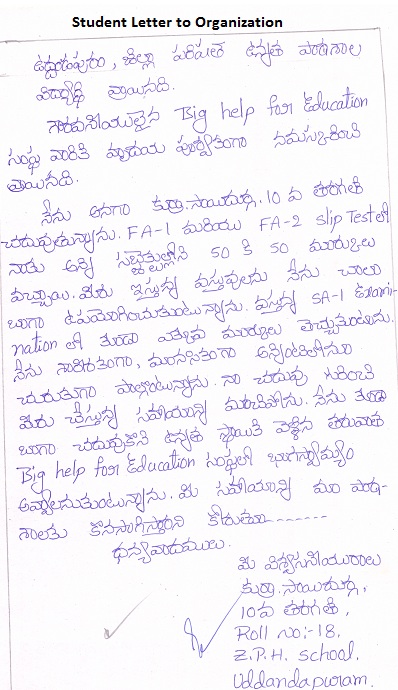 Student Letter to Organization
ఉద్దండపురం, జిల్లా పరిషత్ ఉన్నత పాఠశాల
విద్యార్థి వ్రాయునది.
గౌరవనీయులైన Big help for Education
సంస్థ వారికి హృదయ పూర్వకంగా నమస్కరించి
వ్రాయునది.
నేను అనగా కుర్రా.సాయిదుర్గ. 10 వ తరగతి
చదువుతున్నాను. FA-1 మరియు FA-2 slip Test లో
నాకు అన్ని సబ్జెక్టుల్లోని 50 కి 50 మార్కులు
వచ్చాయి. మీరు ఇస్తున్న వస్తువులను నేను చాలా
బాగా ఉపయోగించుకుంటున్నాను. వస్తున్న SA-1 Exami-
nation లో కూడా ఎక్కువ మార్కులు తెచ్చుకుంటాను.
నేను శారీరకంగా, మానసికంగా అన్నింటిలోనూ
చురుకుగా పాల్గొంటున్నాను. నా చదువు గురించి
మీరు చేస్తున్న సహాయాన్ని మరిచిపోను. నేను కూడా
బాగా చదువుకొని ఉన్నత స్థాయికి వెళ్లిన తరువాత
Big help for Education సంస్థలో భాగస్వామ్యం
అవ్వాలనుకుంటున్నాను. మీ సహాయాన్ని మా పాఠ-
శాలకు కొనసాగిస్తారని కోరుతూ--------
ధన్యవాదములు.
మీ విశ్వసనీయురాలు
కుర్రా. సాయిదుర్గ,
10వ తరగతి,
Roll no:-18.
Z.P.H. school.
Uddandapuram.